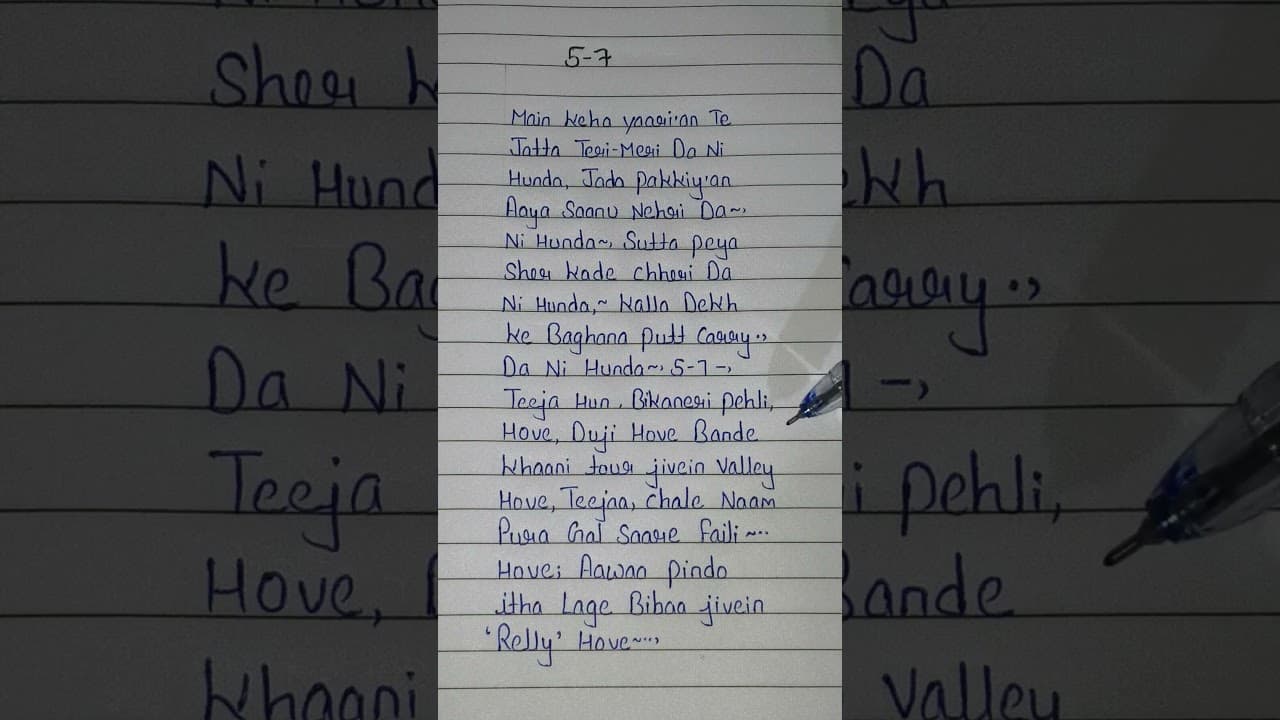 5-7
Main Keha yaari'an Te
Jatta Teri-Meri Da Ni
Hunda, Jado Pakkiy'an
Aaya Saanu Neheri Da~,
Ni Hunda~, Sutta Peya
Sher Kade Chheri Da
Ni Hunda,~ Kalla Dekh
Ke Baghana Putt Carry..,
Da Ni Hunda~, 5-7-,
Teeja Hun, Bikaneri Pehli,
Hove, Duji Hove Bande
Khaani tour jivein Valley
Hove, Teejaa, Chale Naam
Pura Gal Saare Faili~..
Hove; Aawaa Pindo
itha Lage Bibaa jivein
'Relly' Hove~..,